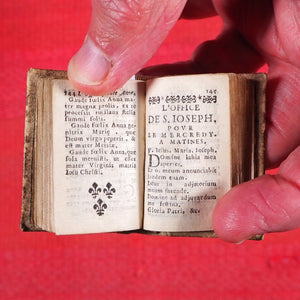 144
Gaude fœlix Anna ma-
ter magna prolis, ex te
processit
solis.
Gaude fœlix Anna
genitrix Mariæ, quæ
Deum virgo peperit, &
est mater Matris.
Gaude fœlix Anna, quæ
sola meruisti, ut esset
mater Virginis matris
Iesu Christi.
145
L'OFFICE
DE S. IOSEPH,
POVR
LE MERCREDY.
A MATINES.
Iesus, Maria, Ioseph,
Domine labia mea
aperies.
Et os meum annuntiabit
laudem tuam.
Deus in adjutorium
meum intende.
Domine ad adjuvandum
me festina.
Gloria Patri, &c.